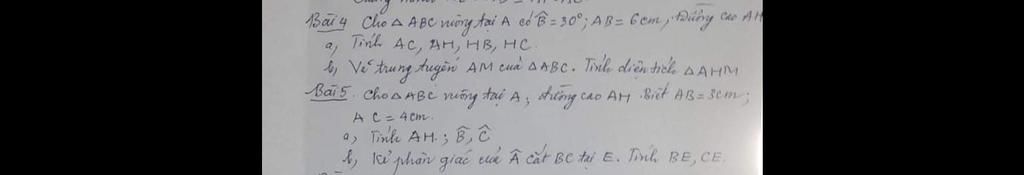 Bài 4 Cho △ ABC vuông tại A có B̂ = 30°; AB = 6cm, Đường cao AH
a, Tính AC, AH, HB, HC.
b, Vẽ trung tuyến AM của △ABC. Tính diện tích △AHM
Bài 5. Cho △ABC vuông tại A; đường cao AH. Biết AB = 3cm;
AC = 4cm.
a, Tính AH.; B̂, Ĉ
b, Kẻ phân giác của Â cắt BC tại E. Tính BE, CE.